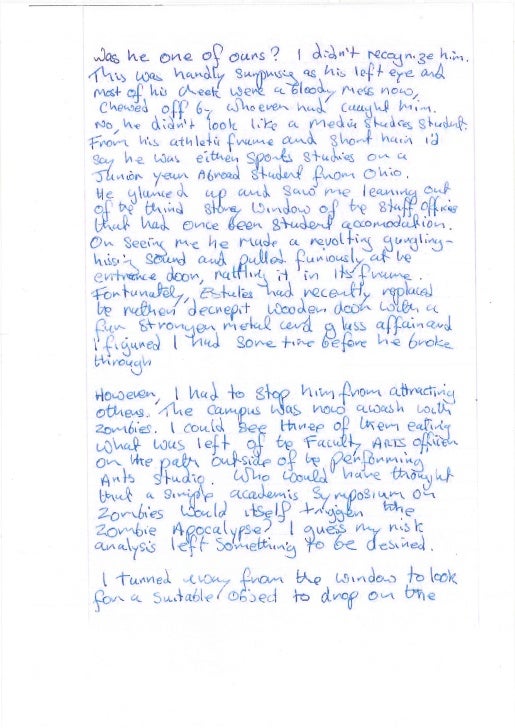 Was he one of ours? I didn't recognize him.
This was hardly surprising as his left eye and
most of his cheek were a bloody mess now,
chewed off by whoever had caught him.
No, he didn't look like a Media Studies Student.
From his athletic frame and short hair I'd
say he was either Sports Studies or a
Junior Year Abroad Student from Ohio.
He glanced up and saw me leaning out
of the third store window of the Staff Offices
that had once been student accomodation.
On seeing me he made a revolting gurgling-
hissing sound and pulled furiously at the
entrance door, rattling it in its frame.
Fortunately, Estates had recently replaced
the rather decrepit wooden door with a
far stronger metal and glass affair and
I figured I had some time before he broke
through
However, I had to stop him from attracting
others. The campus was now awash with
zombies. I could see three of them eating
what was left of the Faculty Arts officer
on the path outside of the Performing
Arts Studio. Who would have thought
that a simple academic Symposium on
Zombies would itself trigger the
Zombie Apocalypse? I guess my risk
analysis left something to be desired.
I turned away from the window to look
for a suitable object to drop on the